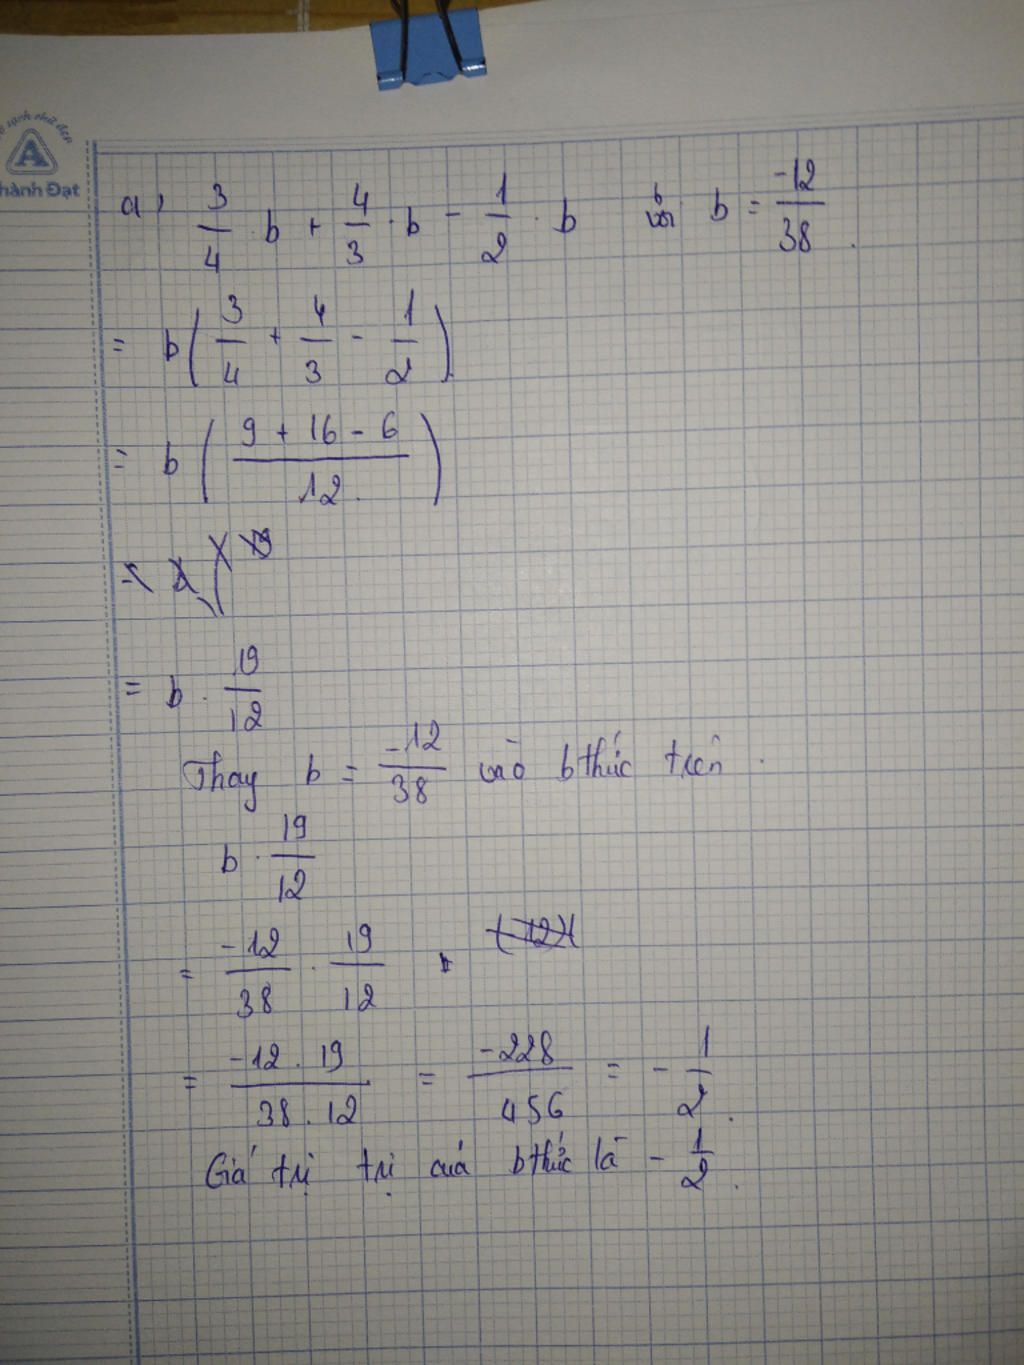 sạch chữ đẹp
A
hành Đạt
a, 3/4 · b + 4/3 · b - 1/2 · b với b = -12/38 .
= b(3/4 + 4/3 - 1/2)
= b((9 + 16 - 6)/12)
= b · 19/12
Thay b = -12/38 vào bthức trên .
b · 19/12
= -12/38 · 19/12
= (-12 . 19)/(38 . 12) = -228/456 = - 1/2 .
Giá trị trị cuả bthức là - 1/2 .